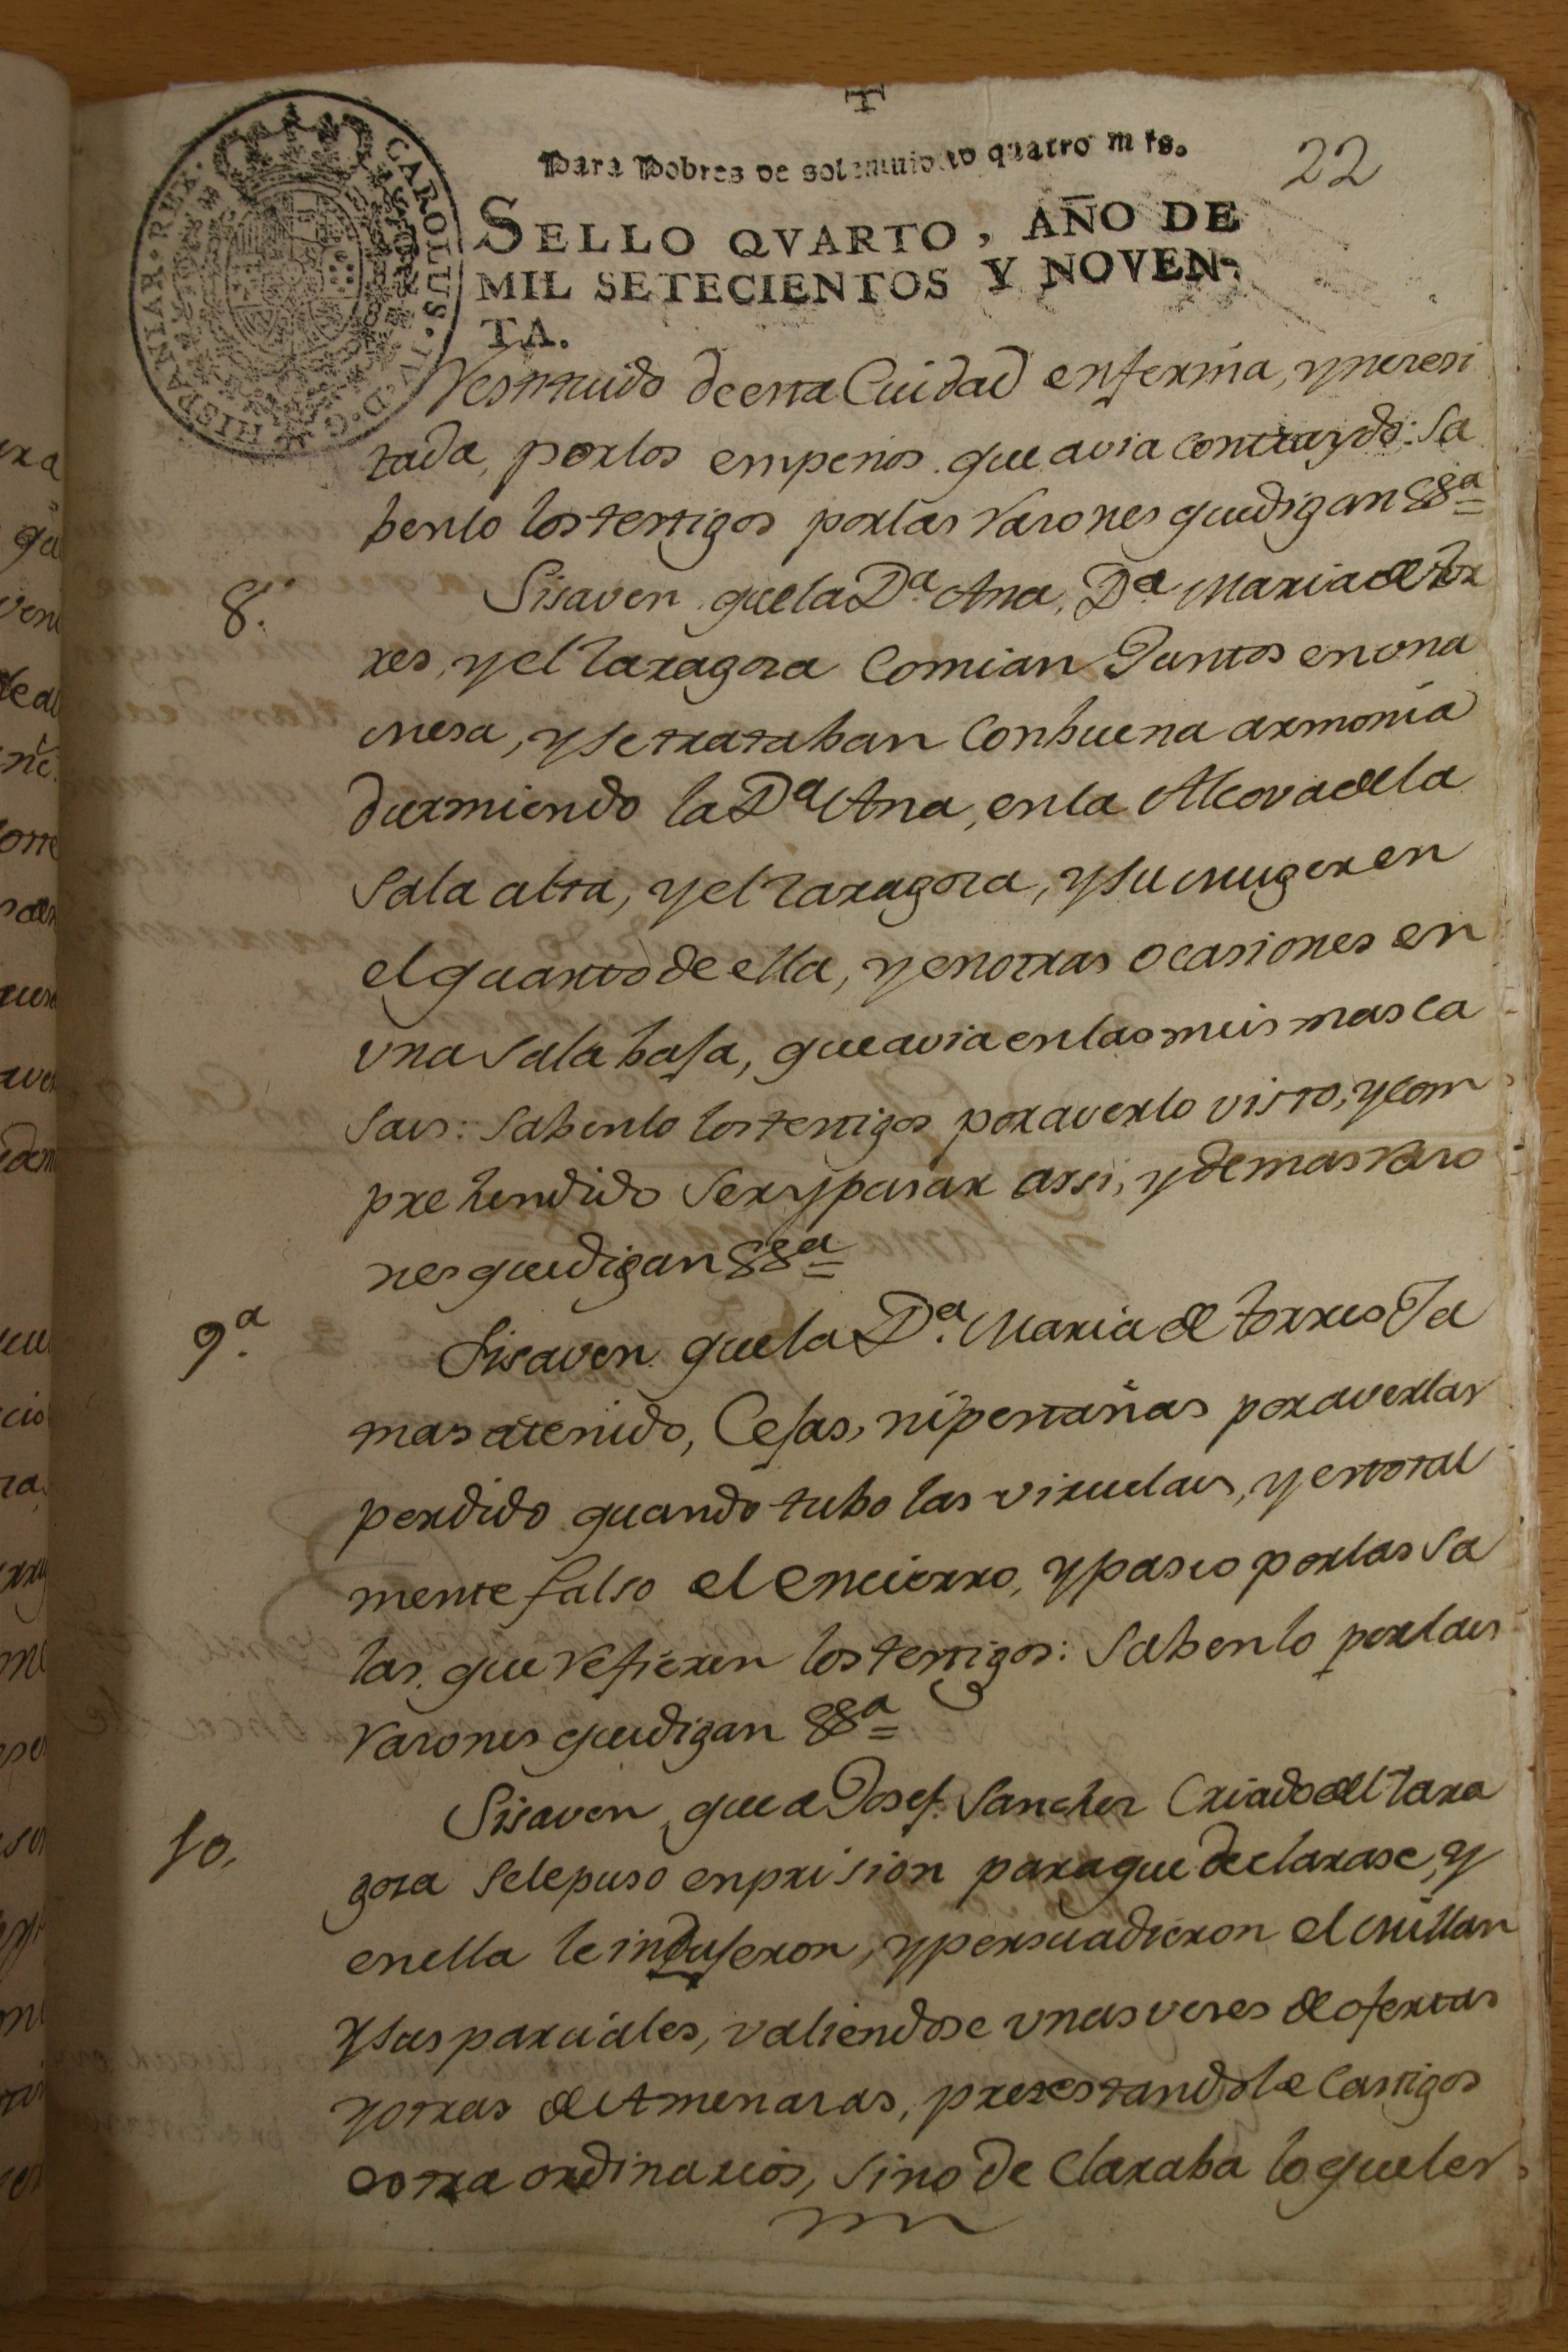 22
Para Pobres de solemnidad quatro mrs.
SELLO QVARTO, AÑO DE
MIL SETECIENTOS Y NOVEN-
TA.
CAROLUS · IV · D · G · HISPANIAR · REX ·
Restituido de esta Cuidad enferma, y nesesi
tada, por los empeños que avia contraydo: Sa
benlo los testigos por las Rasones que digan &&ª
8.ª
Si saven que la Dª Ana, Dª Maria de Tor
res, y el Zaragoza Comian Juntos en una
mesa, y se trataban Con buena armonia
durmiendo la Dª Ana, en la Alcova de la
Sala alta, y el Zaragoza, y su muger en
el quarto de ella, y en otras ocasiones en
una Sala baja, que avia en las mismas ca
sas: Sabenlo los testigos por averlo visto, y com
prehendido Ser y pasar assi, y demas Raso
nes que digan &&ª
9.ª
Si saven que la Dª Maria de Torres Ja
mas a tenido, Cejas, ni pestañas por averlas
perdido quando tubo las viruelas, y es total
mente falso el encierro, y paseo por las Sa
las que refieren los testigos: Sabenlo por las
Rasones que digan &&ª
10.
Si saven, que a Josef Sanchez Criado del Zara
goza Se le puso en prision para que declarase, y
en ella le indujeron, y persuadieron el Millan
y sus parciales, valiendose unas veses de ofertas
y otras de Amenasas, protestandole Castigos
extra ordinarios, Sino de Claraba lo que les